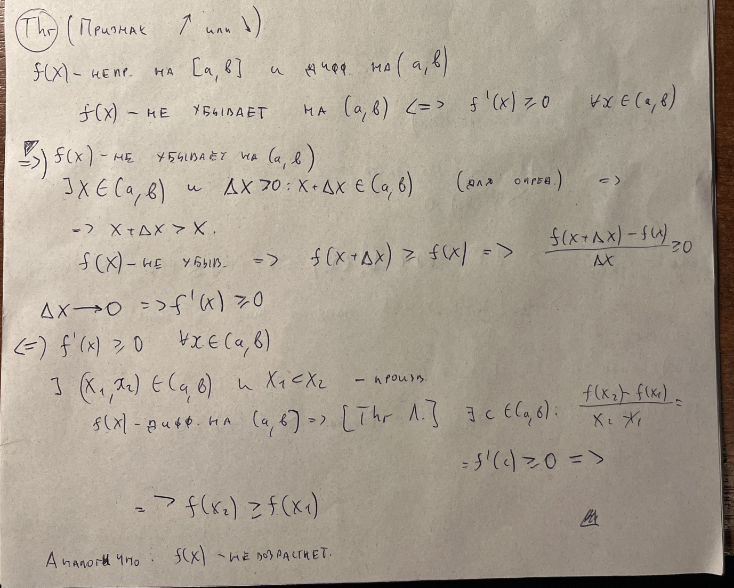 Thr (Признак ↑ или ↓)
f(x) – непр. на [a,b] и дифф на (a,b)
f(x) – не убывает на (a,b) <=> f'(x) ≥ 0 ∀x∈(a,b)
=>) f(x) – не убывает на (a,b)
∃ x∈(a,b) и Δx>0: x+Δx∈(a,b) (для опред.) =>
=> x+Δx > x.
f(x) – не убыв. => f(x+Δx) ≥ f(x) => (f(x+Δx) – f(x))/Δx ≥ 0
Δx → 0 => f'(x) ≥ 0
<=) f'(x) ≥ 0 ∀x∈(a,b)
∃ (x₁,x₂)∈(a,b) и x₁<x₂ – произв
f(x) – дифф. на (a,b] => [Thr Л.] ∃ c∈(a,b): (f(x₂) – f(x₁))/(x₂ – x₁) =
= f'(c) ≥ 0 =>
=> f(x₂) ≥ f(x₁)
Аналогично: f(x) – не возрастает.